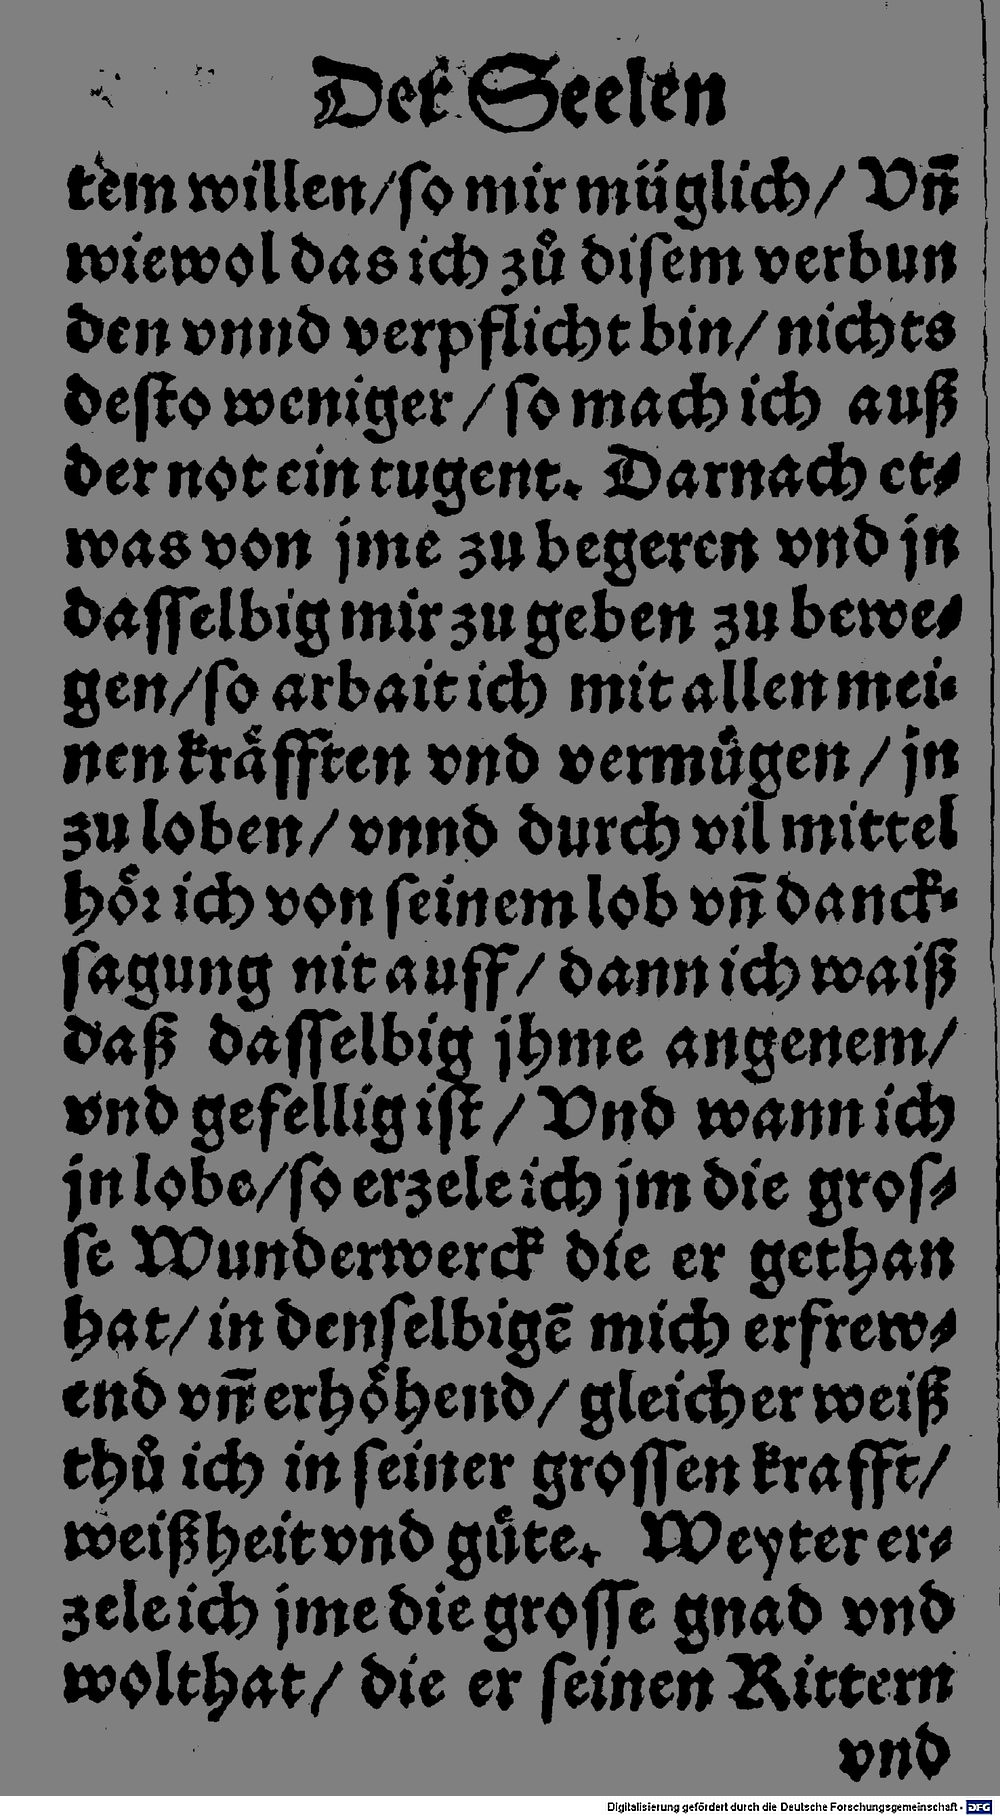 Der Seelen
tem willen/ so mir müglich/ Vn̄
wiewol das ich zů disem verbun
den vnnd verpflicht bin/ nichts
desto weniger / so mach ich auß
der not ein tugent. Darnach et⸗
was von jme zu begeren vnd jn
dasselbig mir zu geben zu bewe⸗
gen/ so arbait ich mit allen mei⸗
nen kraͤfften vnd vermuͤgen / jn
zu loben/ vnnd durch vil mittel
hoͤꝛ ich von seinem lob vn̄ danck⸗
sagung nit auff/ dann ich waiß
daß dasselbig jhme angenem/
vnd gefellig ist / Vnd wann ich
jn lobe/ so erzele ich jm die gros⸗
se Wunderwerck die er gethan
hat/ in denselbigē mich erfrew⸗
end vn̄ erhoͤhend/ gleicher weiß
thů ich in seiner grossen krafft/
weißheit vnd guͤte. Weyter er⸗
zele ich jme die grosse gnad vnd
wolthat/ die er seinen Rittern
vnd
Digitalisierung gefördert durch die Deutsche Forschungsgemeinschaft - DFG